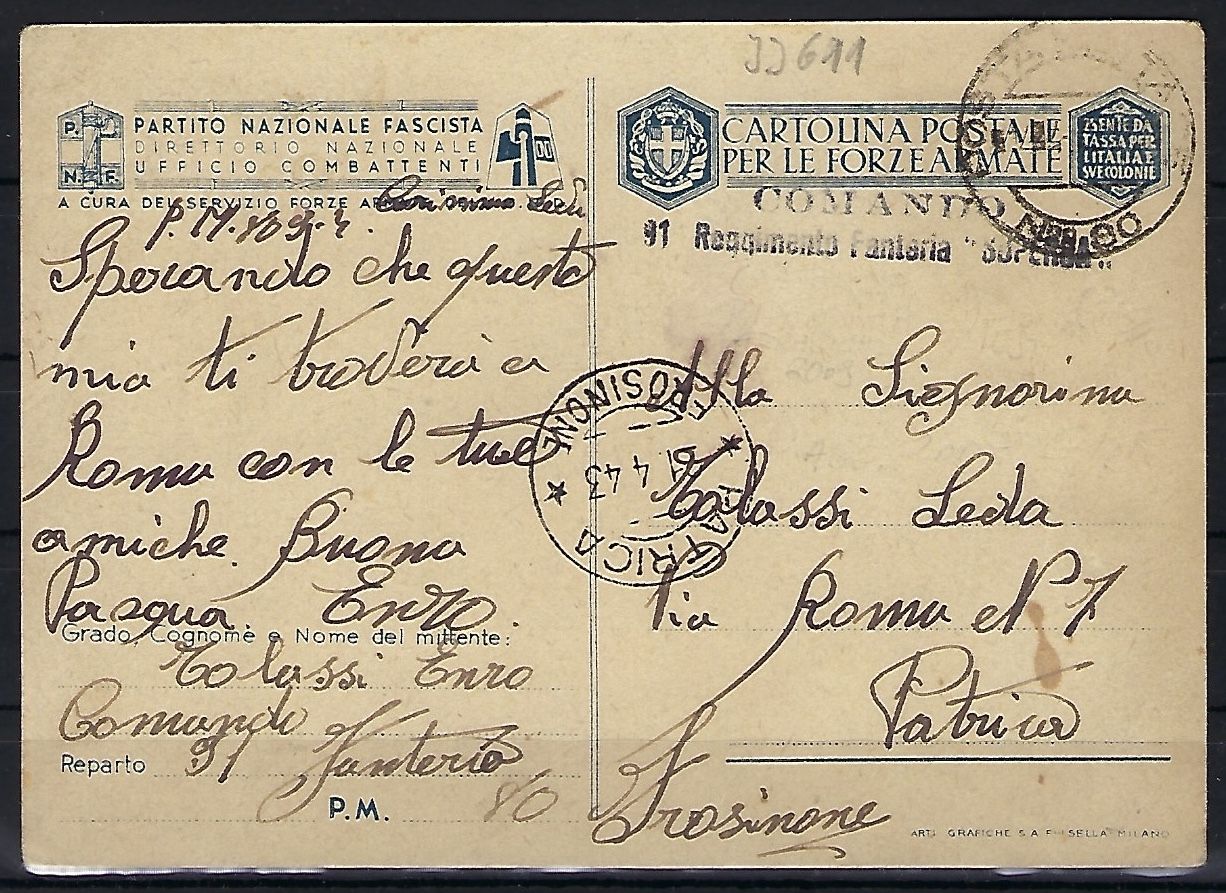 JJ611
P. N. F.
PARTITO NAZIONALE FASCISTA
DIRETTORIO NAZIONALE
UFFICIO COMBATTENTI
A CURA DEL SERVIZIO FORZE
P.M. 80 9-4 Carissima Leda
Sperando che questa
mia ti troverà a
Roma con le tue
amiche. Buona
Pasqua. Enzo.
Grado, Cognome e Nome del mittente:
Tolassi Enzo
Comando
Reparto 91 Fanteria
P.M. 80
CARTOLINA POSTALE
PER LE FORZE ARMATE
ESENTE DA
TASSA PER
L'ITALIA E
SUE COLONIE
COMANDO
91 Reggimento Fanteria "SUPERGA"
PATRICA
FROSINONE
4 43
Alla Signorina
Tolassi Leda
Via Roma N 7
Patrica
Frosinone
ARTI GRAFICHE S.A. PIZZI MILANO